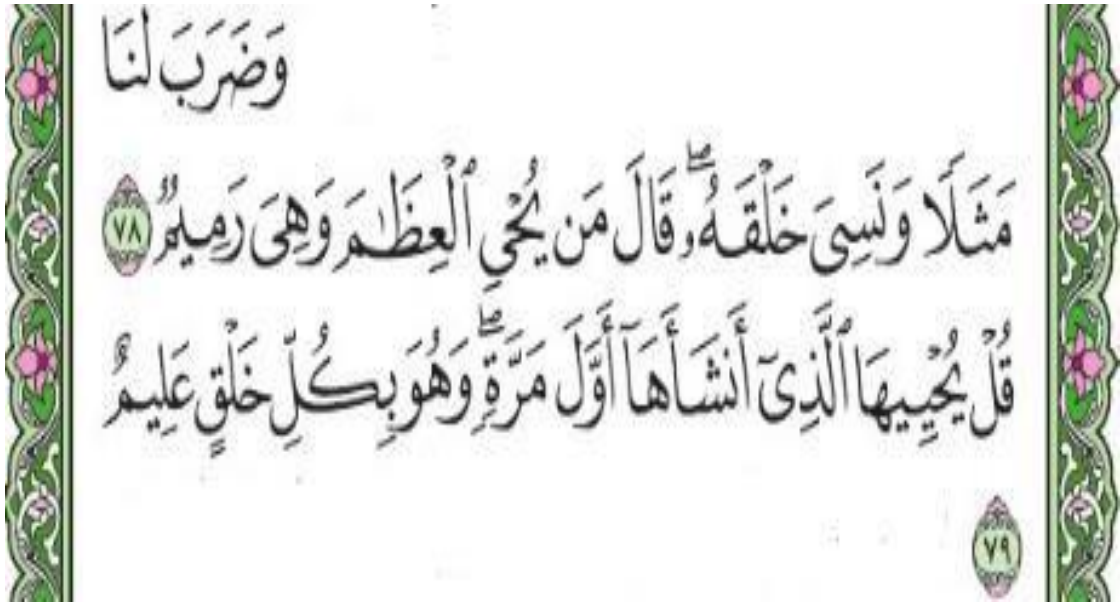 وَضَرَبَ لَنَا
مَثَلًا وَنَسِىَ خَلْقَهُۥ ۖ قَالَ مَن يُحْىِ ٱلْعِظَٰمَ وَهِىَ رَمِيمٌ ٧٨
قُلْ يُحْيِيهَا ٱلَّذِىٓ أَنشَأَهَآ أَوَّلَ مَرَّةٍ ۖ وَهُوَ بِكُلِّ خَلْقٍ عَلِيمٌ
٧٩